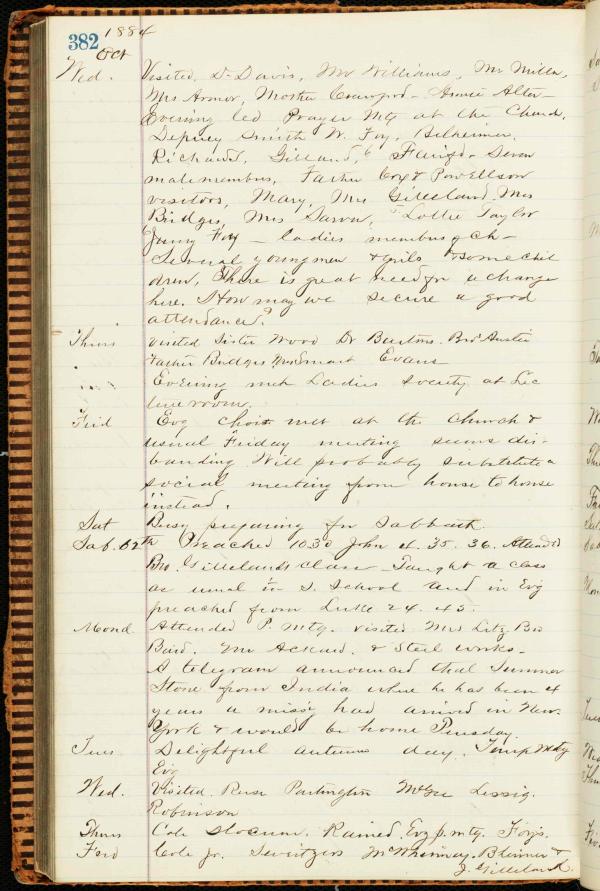 382 1884
Oct
Wed. Visited, Dr Davis, Mr Williams, Mr Miller,
Mrs Armor, Mother Crawford - Grace Alter -
Evening led Prayer Mtg at the Church,
Smith W. Foy,
Richards, Gilland, Seven
male members, Father Cox & Powellson
visitors, Mary, Mrs Gilleland, Mrs
Bridges, Mrs Lottie Taylor
Jenny Foy - ladies members of Ch -
Several young men & girls & some chil
dren, There is great need for a change
here. How may we secure a good
attendance?
Thurs visited Sister Wood Dr Burtons. Bro Austin
Father Bridges Mrs Smart Evans
Evening met Ladies Society at Lec
ture room.
Frid Evg choir met at the Church &
usual Friday meeting seems dis-
banding. Will probably substitute a
social meeting from house to house
instead.
Sat Busy preparing for Sabbath
Sab. Preached 10.30 John 4. 35. 36. Attend
Bro. Gillelands class - Taught a class
as usual in S. School and in Evg
preached from Luke 24. 45.
Mond. Attended P. Mtg. visited Mrs Litz Bro
Baird. Mr Ackard. & Steel works -
A telegram announced that Sumner
Stone from India where he has been 4
years a miss'y had arrived in New
York & would be home Tuesday.
Tues Delightful autumn day. Temp Mtg
Evg
Wed. Visited Partington McGee Lessig.
Robinson
Thurs Cole Slocum. Rained. Evg p. mtg. Foy's.
Frid Cole Jr. Sweitzers McWhinney. &
J. Gilleland.